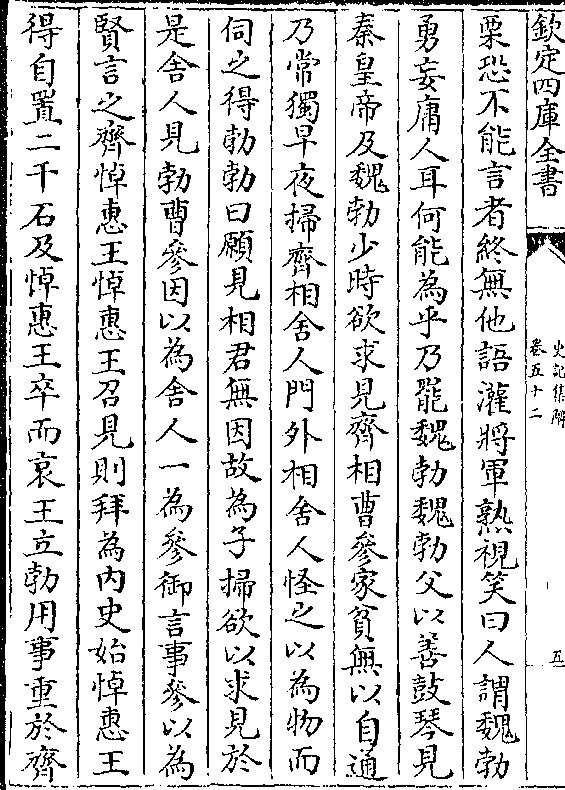 欽定四庫全書
史記集解
卷五十二
五
栗恐不能言者終無他語灌將軍熟視笑曰人謂魏勃
勇妄庸人耳何能為乎乃罷魏勃魏勃父以善鼓琴見
秦皇帝及魏勃少時欲求見齊相曹參家貧無以自通
乃常獨早夜掃齊相舍人門外相舍人怪之以為物而
伺之得勃勃曰願見相君無因故為子掃欲以求見於
是舍人見勃曹參因以為舍人一為參御言事參以為
賢言之齊悼惠王悼惠王召見則拜為內史始悼惠王
得自置二千石及悼惠王卒而哀王立勃用事重於齊